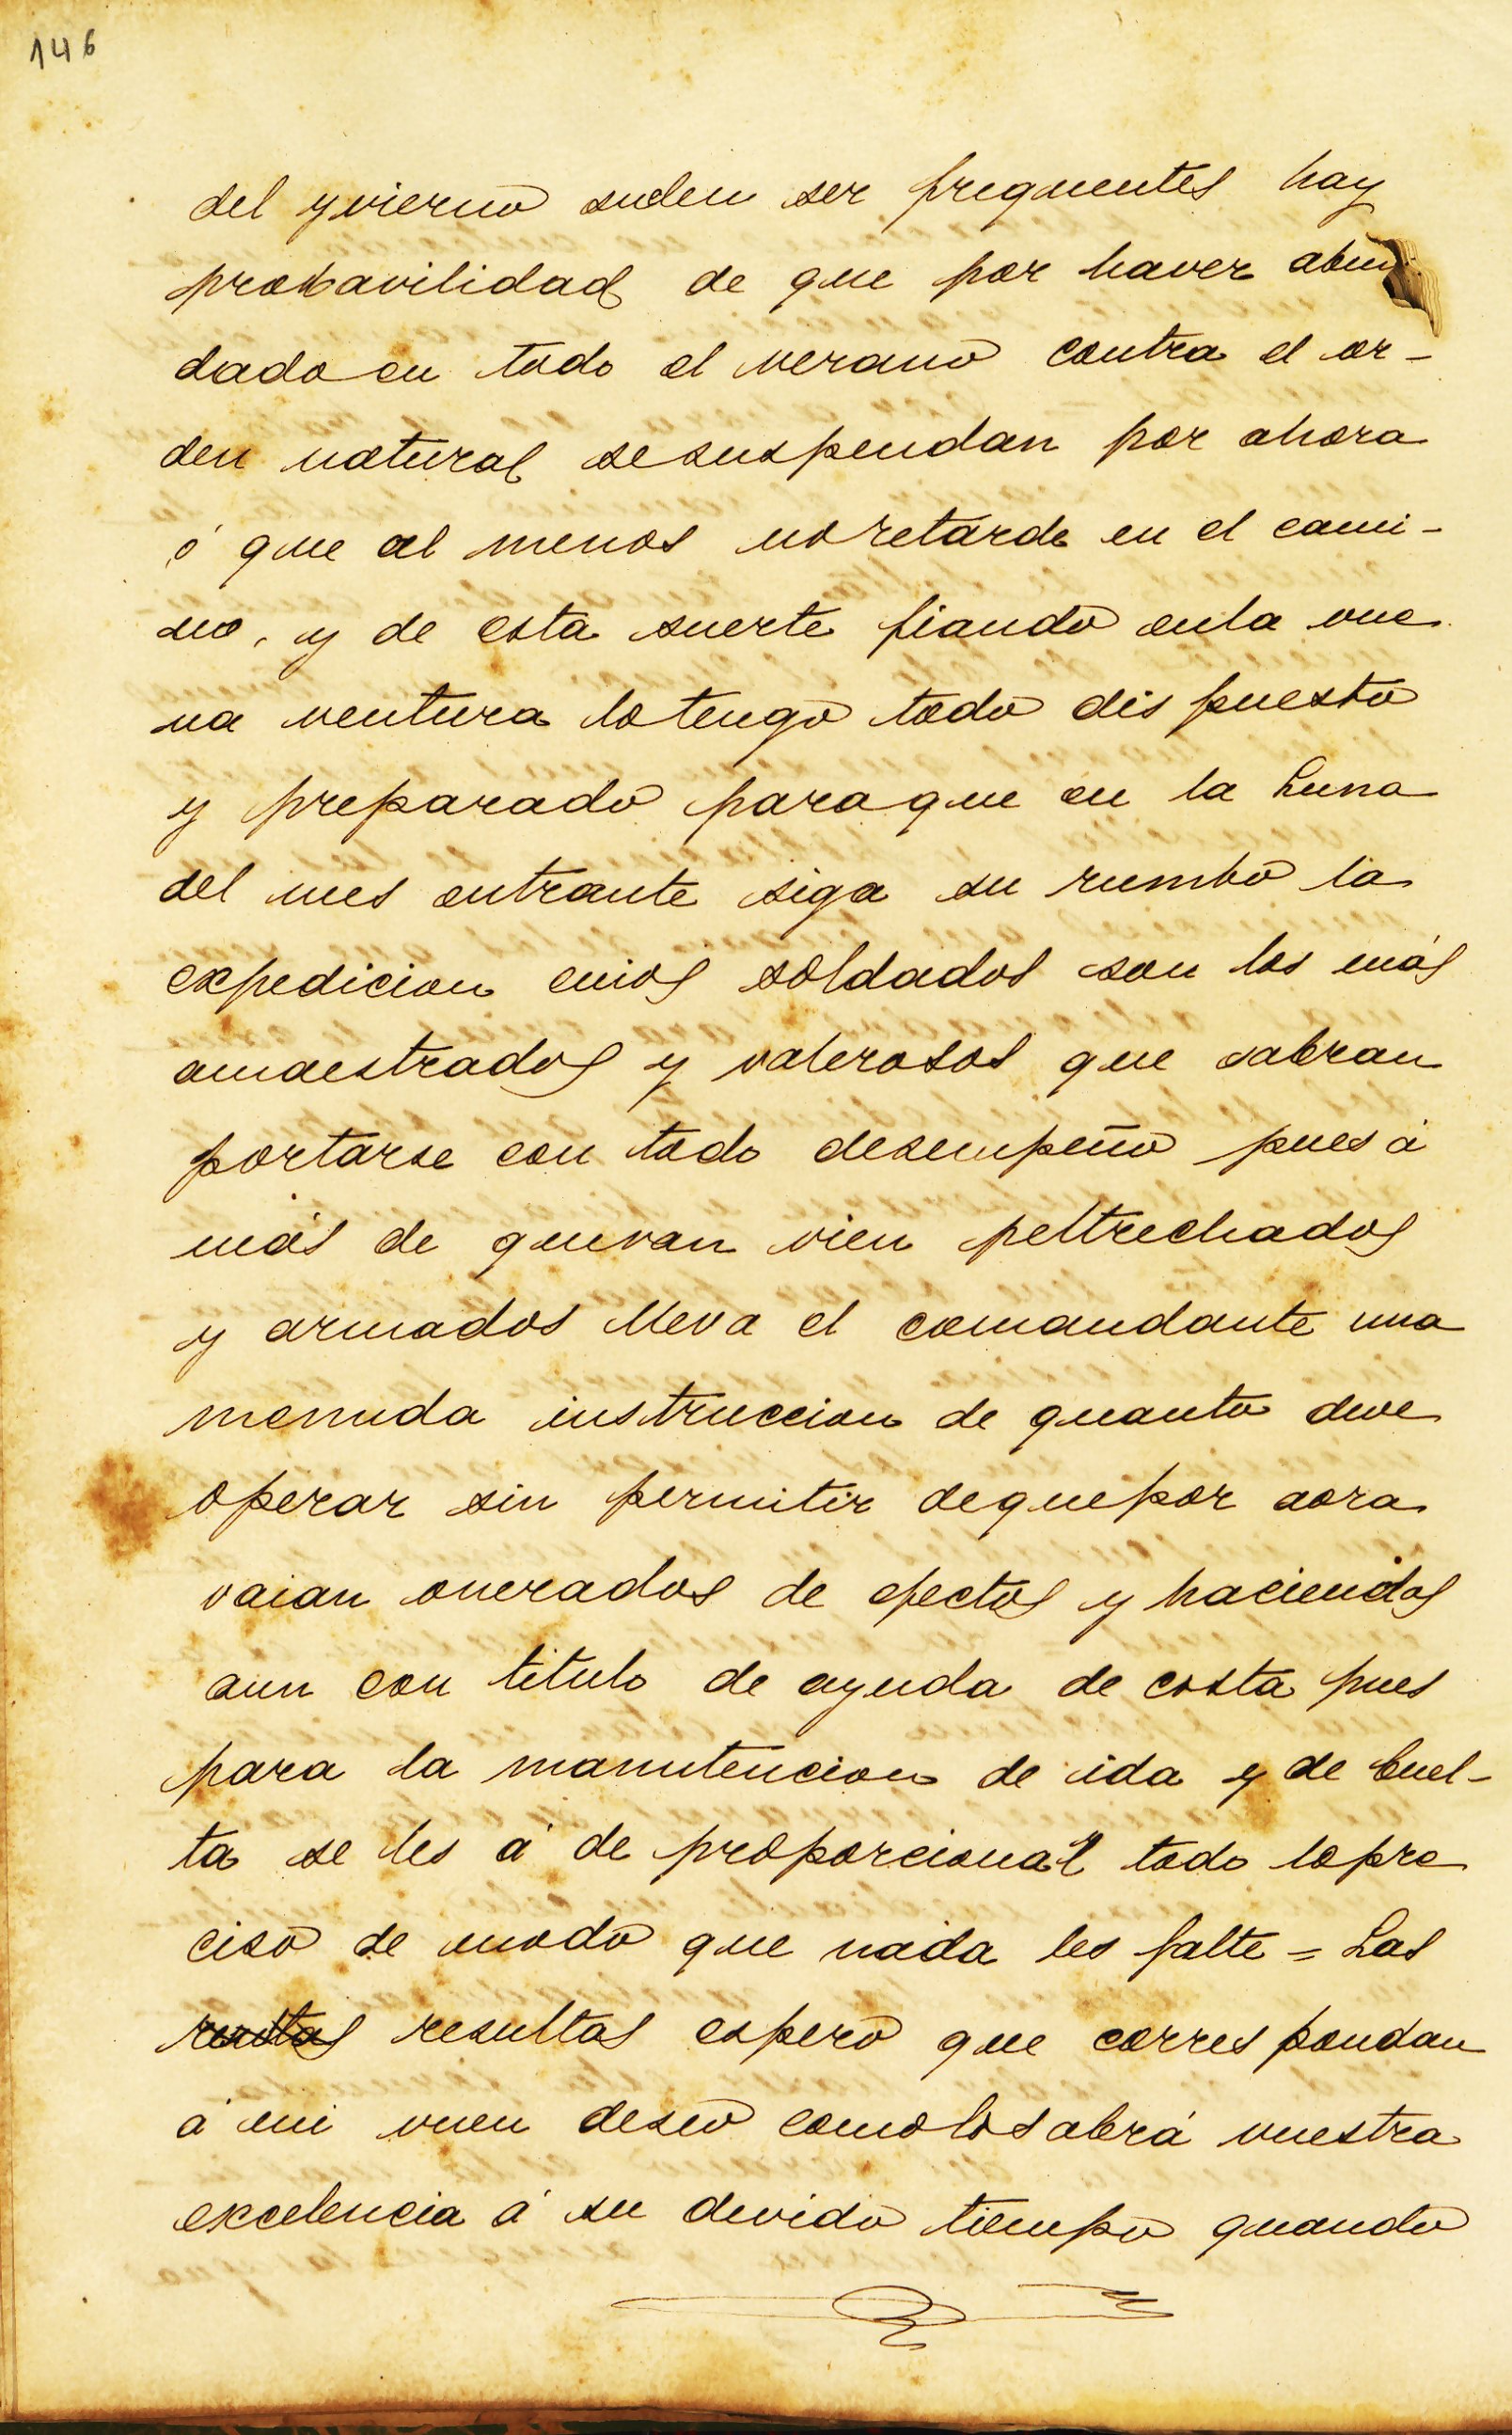 146
del yvierno suelen ser frequentes hay
probavilidad de que por haver abun
dado en todo el verano contra el or-
den natural se suspendan por ahora
ó que al menos no retarde en el cami-
no, y de esta suerte fiando en la vue
na ventura lo tengo todo dispuesto
y preparado para que en la Luna
del mes entrante siga su rumbo la
expedicion cuios soldados son los más
amaestrados y valerosos que sabran
portarse con todo desempeño pues á
más de que van vien peltrechados
y armados lleva el comandante una
menuda instruccion de quanto deve
operar sin permitir de que por aora
vaian onerados de efectos y haciendas
aun con titulo de ayuda de costa pues
para la manutencion de ida y de buel-
ta se les á de proporcional todo lo pre
ciso de modo que nada les falte = Las
resultas espero que correspondan
á mi vuen deseo como lo sabrá vuestra
excelencia á su devido tiempo quando